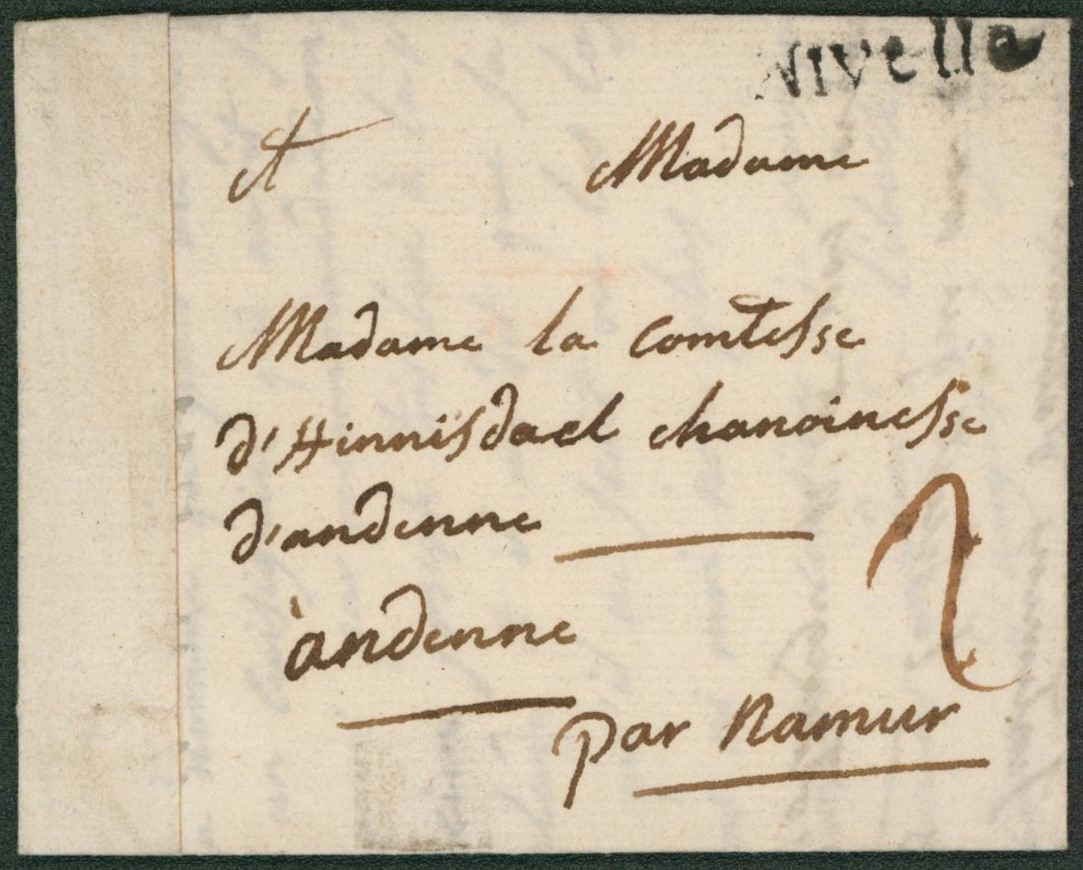 Nivelle
A Madame
Madame la comtesse
d'Hinnisdael chanoinesse
d'andenne
à andenne
2
par Namur